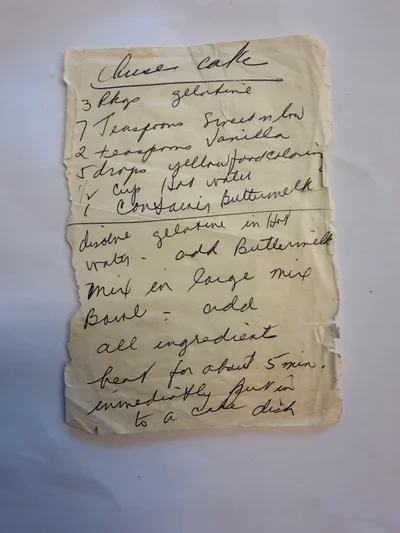 Cheese cake
3 Pkgs gelatine
7 Teaspoons Sweet n low
2 teaspoons Vanilla
5 drops yellow food coloring
1/2 cup Hot water
1 Container Buttermelk
disolve gelatine in Hot
water - add Buttermelk
mix in large mix
Bowl - add
all ingredient
beat for about 5 min.
immediatly put in
to a cake dish